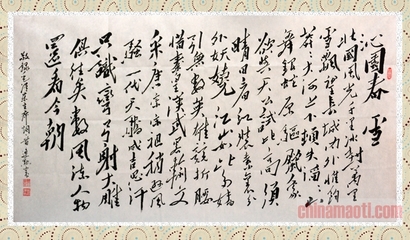 沁園春 雪
北國風光千里冰封萬里
雪飄望長城内外惟餘
莽莽大河上下頓失滔滔山
舞銀蛇原馳蠟象
欲與天公試比高須
晴日看紅裝素裹分
外妖嬈江山如此多嬌
引無數英雄競折腰
惜秦皇漢武略輸文
采唐宗宋祖稍遜風
騷一代天驕成吉思汗
只識彎弓射大雕
俱往矣數風流人物
還看今朝
毛澤東主席詞
chinamaoti.com